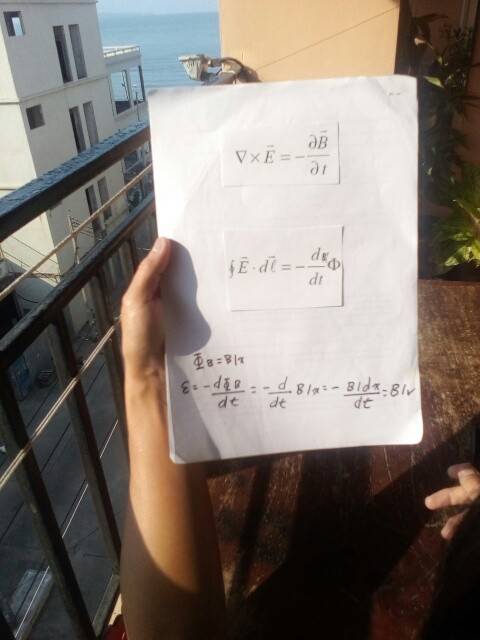 ∇×E⃗ = -∂B⃗/∂t
∮E⃗·dℓ⃗ = -d/dt Φ
Φ B = Blx
ε = -dΦB/dt = -d/dt Blx = -Bldx/dt = Blv